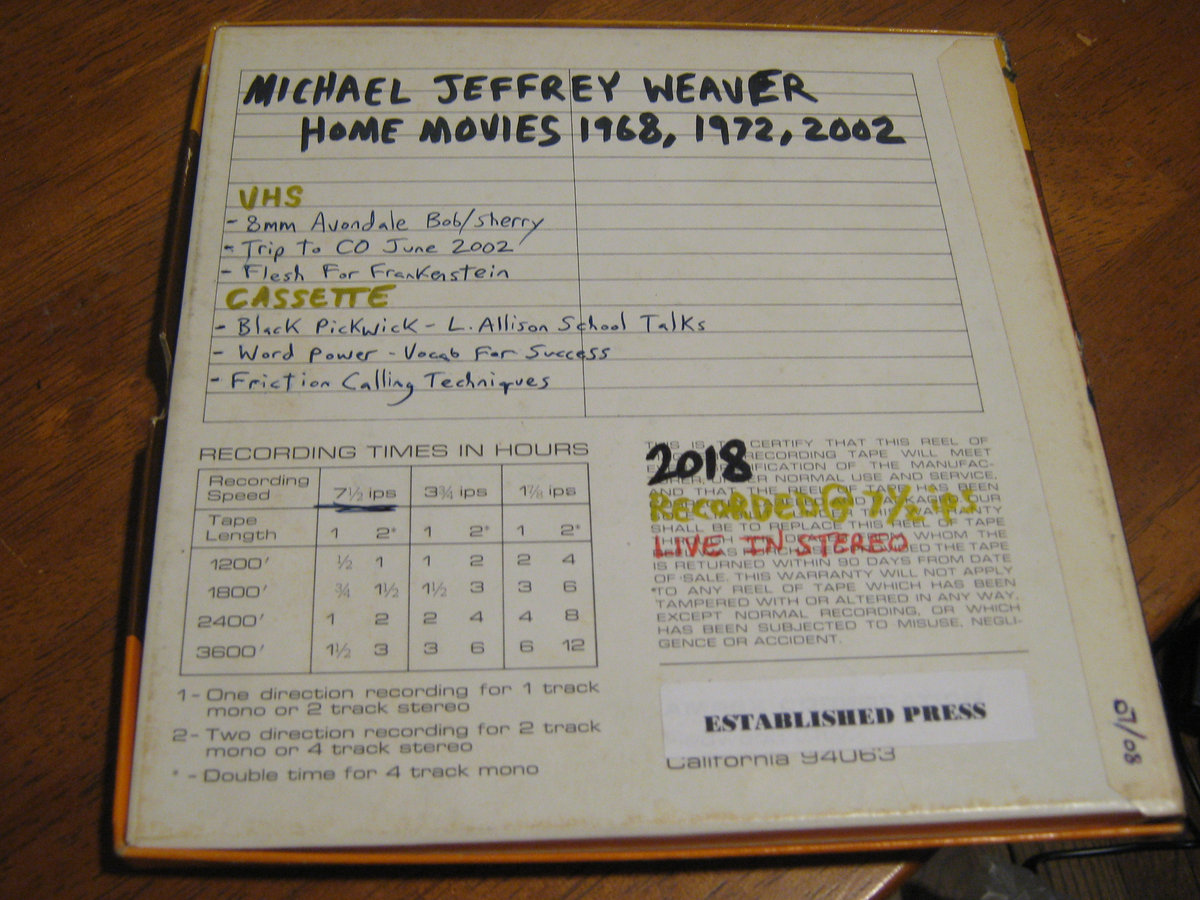 MICHAEL JEFFREY WEAVER
HOME MOVIES 1968, 1972, 2002
VHS
- 8mm Avondale Bob/Sherry
- Trip To CO June 2002
- Flesh For Frankenstein
CASSETTE
- Black Pickwick - L. Allison School Talks
- Word Power - Vocab For Success
- Friction Calling Techniques
RECORDING TIMES IN HOURS
Recording Speed 7½ ips 3¾ ips 1⅞ ips
Tape Length 1 2* 1 2* 1 2*
1200' ½ 1 1 2 2 4
1800' ¾ 1½ 1½ 3 3 6
2400' 1 2 2 4 4 8
3600' 1½ 3 3 6 6 12
1 - One direction recording for 1 track
mono or 2 track stereo
2 - Two direction recording for 2 track
mono or 4 track stereo
* - Double time for 4 track mono
2018
RECORDED @ 7½ ips
LIVE IN STEREO
THIS IS CERTIFY THAT THIS REEL OF
RECORDING TAPE WILL MEET
OF THE MANUFAC-
NORMAL USE AND SERVICE,
AND THAT THE REEL OF TAPE HAS BEEN
OUR
THIS WARRANTY
SHALL BE TO REPLACE THIS REEL OF TAPE
WHOM THE
THE TAPE
IS RETURNED WITHIN 90 DAYS FROM DATE
OF SALE. THIS WARRANTY WILL NOT APPLY
TO ANY REEL OF TAPE WHICH HAS BEEN
TAMPERED WITH OR ALTERED IN ANY WAY,
EXCEPT NORMAL RECORDING, OR WHICH
HAS BEEN SUBJECTED TO MISUSE, NEGLI-
GENCE OR ACCIDENT.
ESTABLISHED PRESS
California 94063
07/08